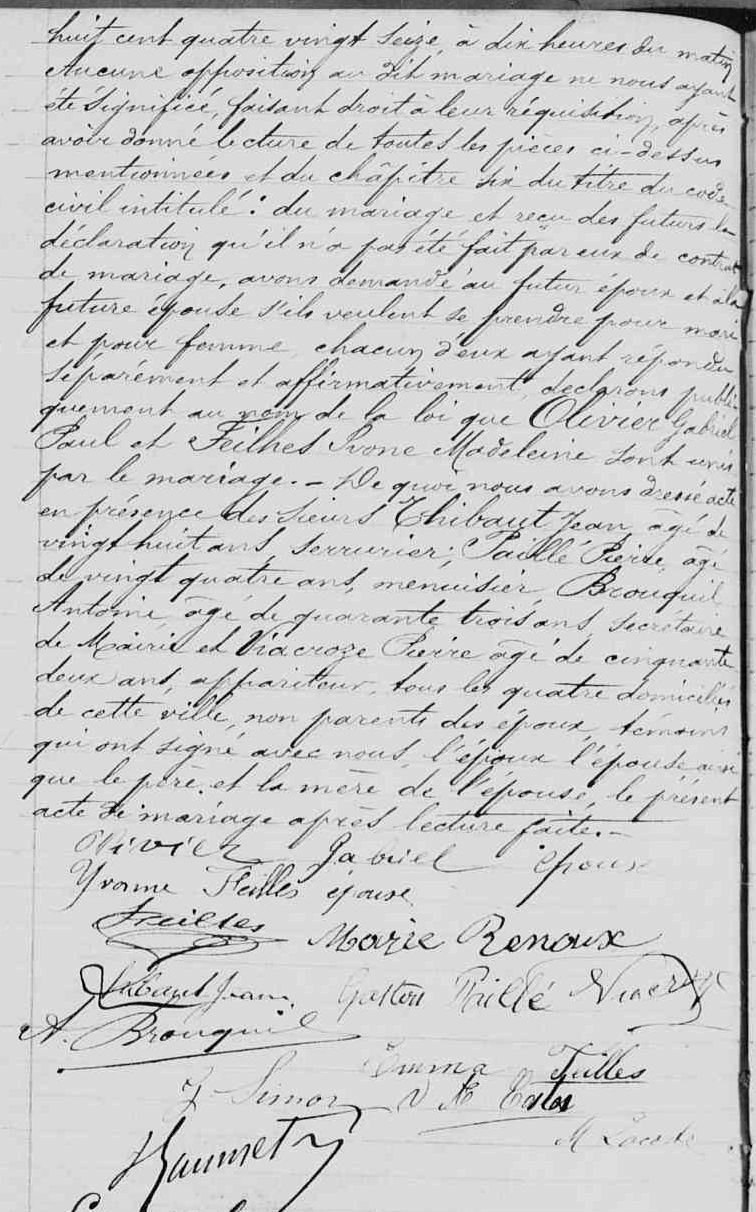 huit cent quatre vingt seize, à dix heures du matin
Aucune opposition au dit mariage ne nous ayant
été signifiée, faisant droit à leur réquisition, après
avoir donné lecture de toutes les pièces ci-dessus
mentionnées et du châpitre six du titre du code
civil intitulé : du mariage et reçu des futurs la
déclaration qu'il n'a pas été fait par eux de contrat
de mariage, avons demandé au futur époux et à la
future épouse s'ils veulent se prendre pour mari
et pour femme, chacun d'eux ayant répondu
séparément et affirmativement, déclarons publi
quement au nom de la loi que Olivier Gabriel
Paul et Feilhes Ivone Madeleine sont unis
par le mariage. - De quoi nous avons dressé acte
en présence des sieurs Thibaut Jean âgé de
vingt huit ans, serrurier; Paillé Pierre, âgé
de vingt quatre ans, menuisier, Brouquil
Antoine, âgé de quarante trois ans, secrétaire
de Mairie et Viacroze Pierre âgé de cinquante
deux ans, appariteur, tous les quatre domiciliés
de cette ville, non parents des époux, témoins
qui ont signé avec nous, l'époux l'épouse ainsi
que le père et la mère de l'épouse, le présent
acte de mariage après lecture faite. -
Olivier Gabriel époux
Yvonne Feilles épouse
Feilles Marie Renoux
Thibaut Jean Gaston Paillé Viacroze
A. Brouquil
Emma Feilles
Simon
M Lacoste